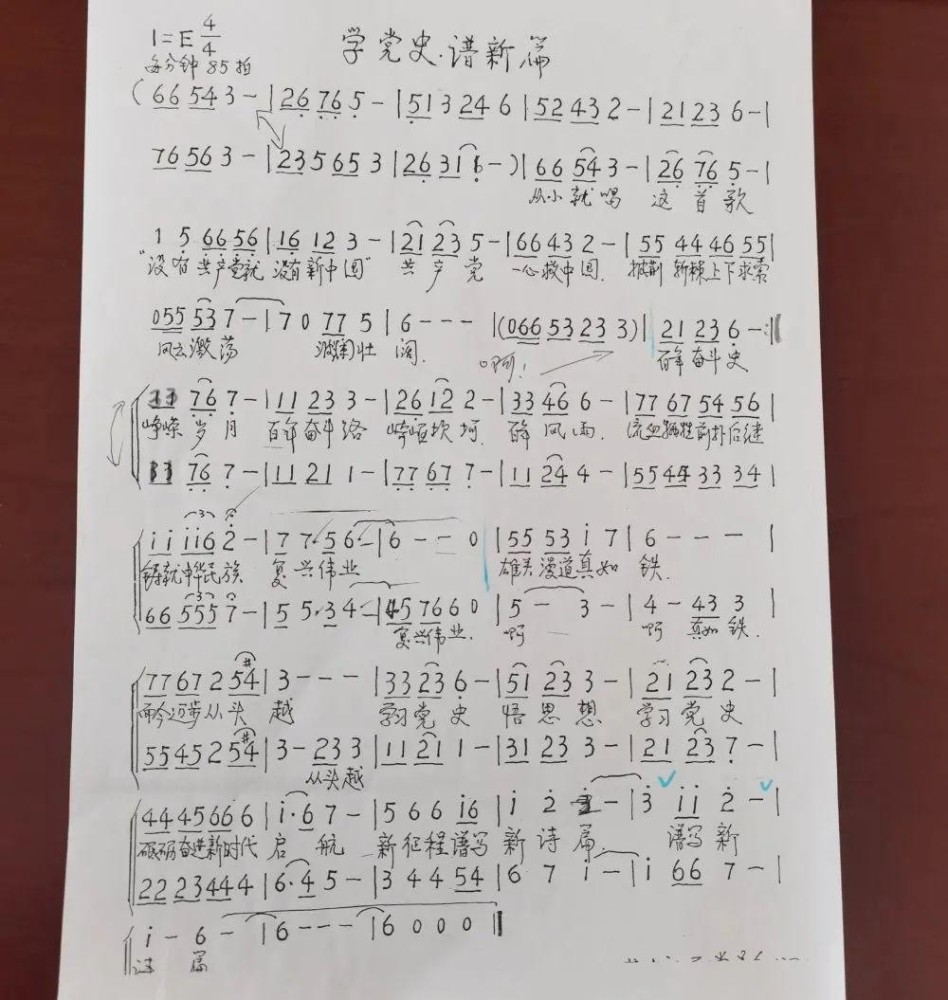 学党史·谱新篇
1=E 4/4
每分钟85拍
(66 54 3 - | 26 76 5 - | 51 3 24 6 | 52 43 2 - | 21 23 6 - |
76 56 3 - | 23 5 65 3 | 26 31 6 - ) | 66 54 3 - | 26 76 5 - |
从小就唱 这首歌
1 5 66 56 | 16 12 3 - | 21 23 5 - | 66 43 2 - | 55 44 46 55 |
"没有共产党就 没有新中国" 共产党 一心救中国. 披荆斩棘上下求索
055 53 7 - | 7 0 77 5 | 6 - - - | (066 53 23 3) | 21 23 6 - :|
风云激荡 波澜壮阔. 啊! 百年奋斗史
33 76 7 - | 11 23 3 - | 26 12 2 - | 33 46 6 - | 77 67 54 56 |
峥嵘岁月 百年奋斗路 坎坷. 百年风雨. 流血牺牲前扑后继
33 76 7 - | 11 21 1 - | 77 67 7 - | 11 24 4 - | 55 44 33 34 |
i i i i 6 2̇ - | 7 7 5 6 - | 6 - - 0 | 55 53 i 7 | 6 - - - |
铸就中华民族 复兴伟业 雄关漫道真如铁.
66 555 7 - | 5 5 · 3 4 - | 45 76 6 0 | 5 - 3 - | 4 - 43 3 |
复兴伟业. 啊 啊 真如铁.
77 67 2 5#4 | 3 - - - | 33 23 6 - | 51 23 3 - | 21 23 2 - |
而今迈步从头越 学习党史 悟思想 学习党史
55 45 2 5#4 | 3 - 23 3 | 11 21 1 - | 31 23 3 - | 21 23 7 - |
从头越
44 45 66 6 | i·6 7 - | 5 6 6 i6 | i 2̇ - | 3̇ i i 2̇ - |
砥砺奋进新时代 启航 新征程谱写 新诗篇. 谱写新
22 23 44 4 | 6·4 5 - | 3 4 4 54 | 6 7 i - | i 66 7 - |
i - 6 - | 6 - - - | 6 0 0 0 ‖
诗篇